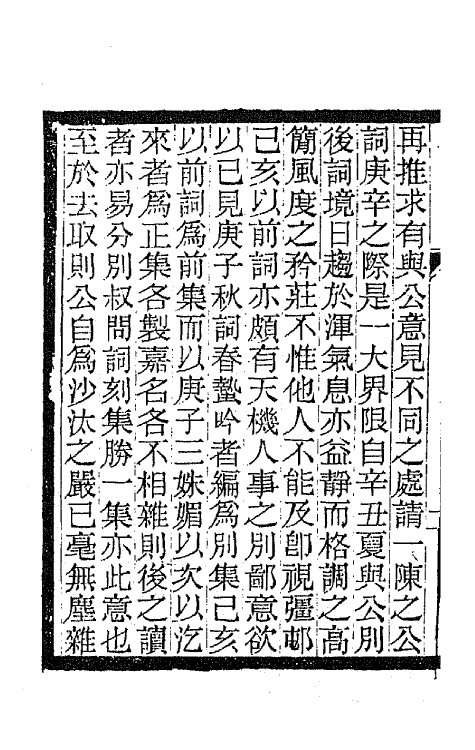 再推求有與公意見不同之處請一陳之公
詞庚辛之際是一大界限自辛丑夏與公別
後詞境日趨於渾氣息亦益靜而格調之高
簡風度之矜莊不惟他人不能及卽視彊邨
己亥以前詞亦頗有天機人事之別鄙意欲
以已見庚子秋詞春蟄吟者編爲別集己亥
以前詞爲前集而以庚子三姝媚以次以汔
來者爲正集各製嘉名各不相雜則後之讀
者亦易分別叔問詞刻集勝一集亦此意也
至於去取則公自爲沙汰之嚴已毫無塵雜